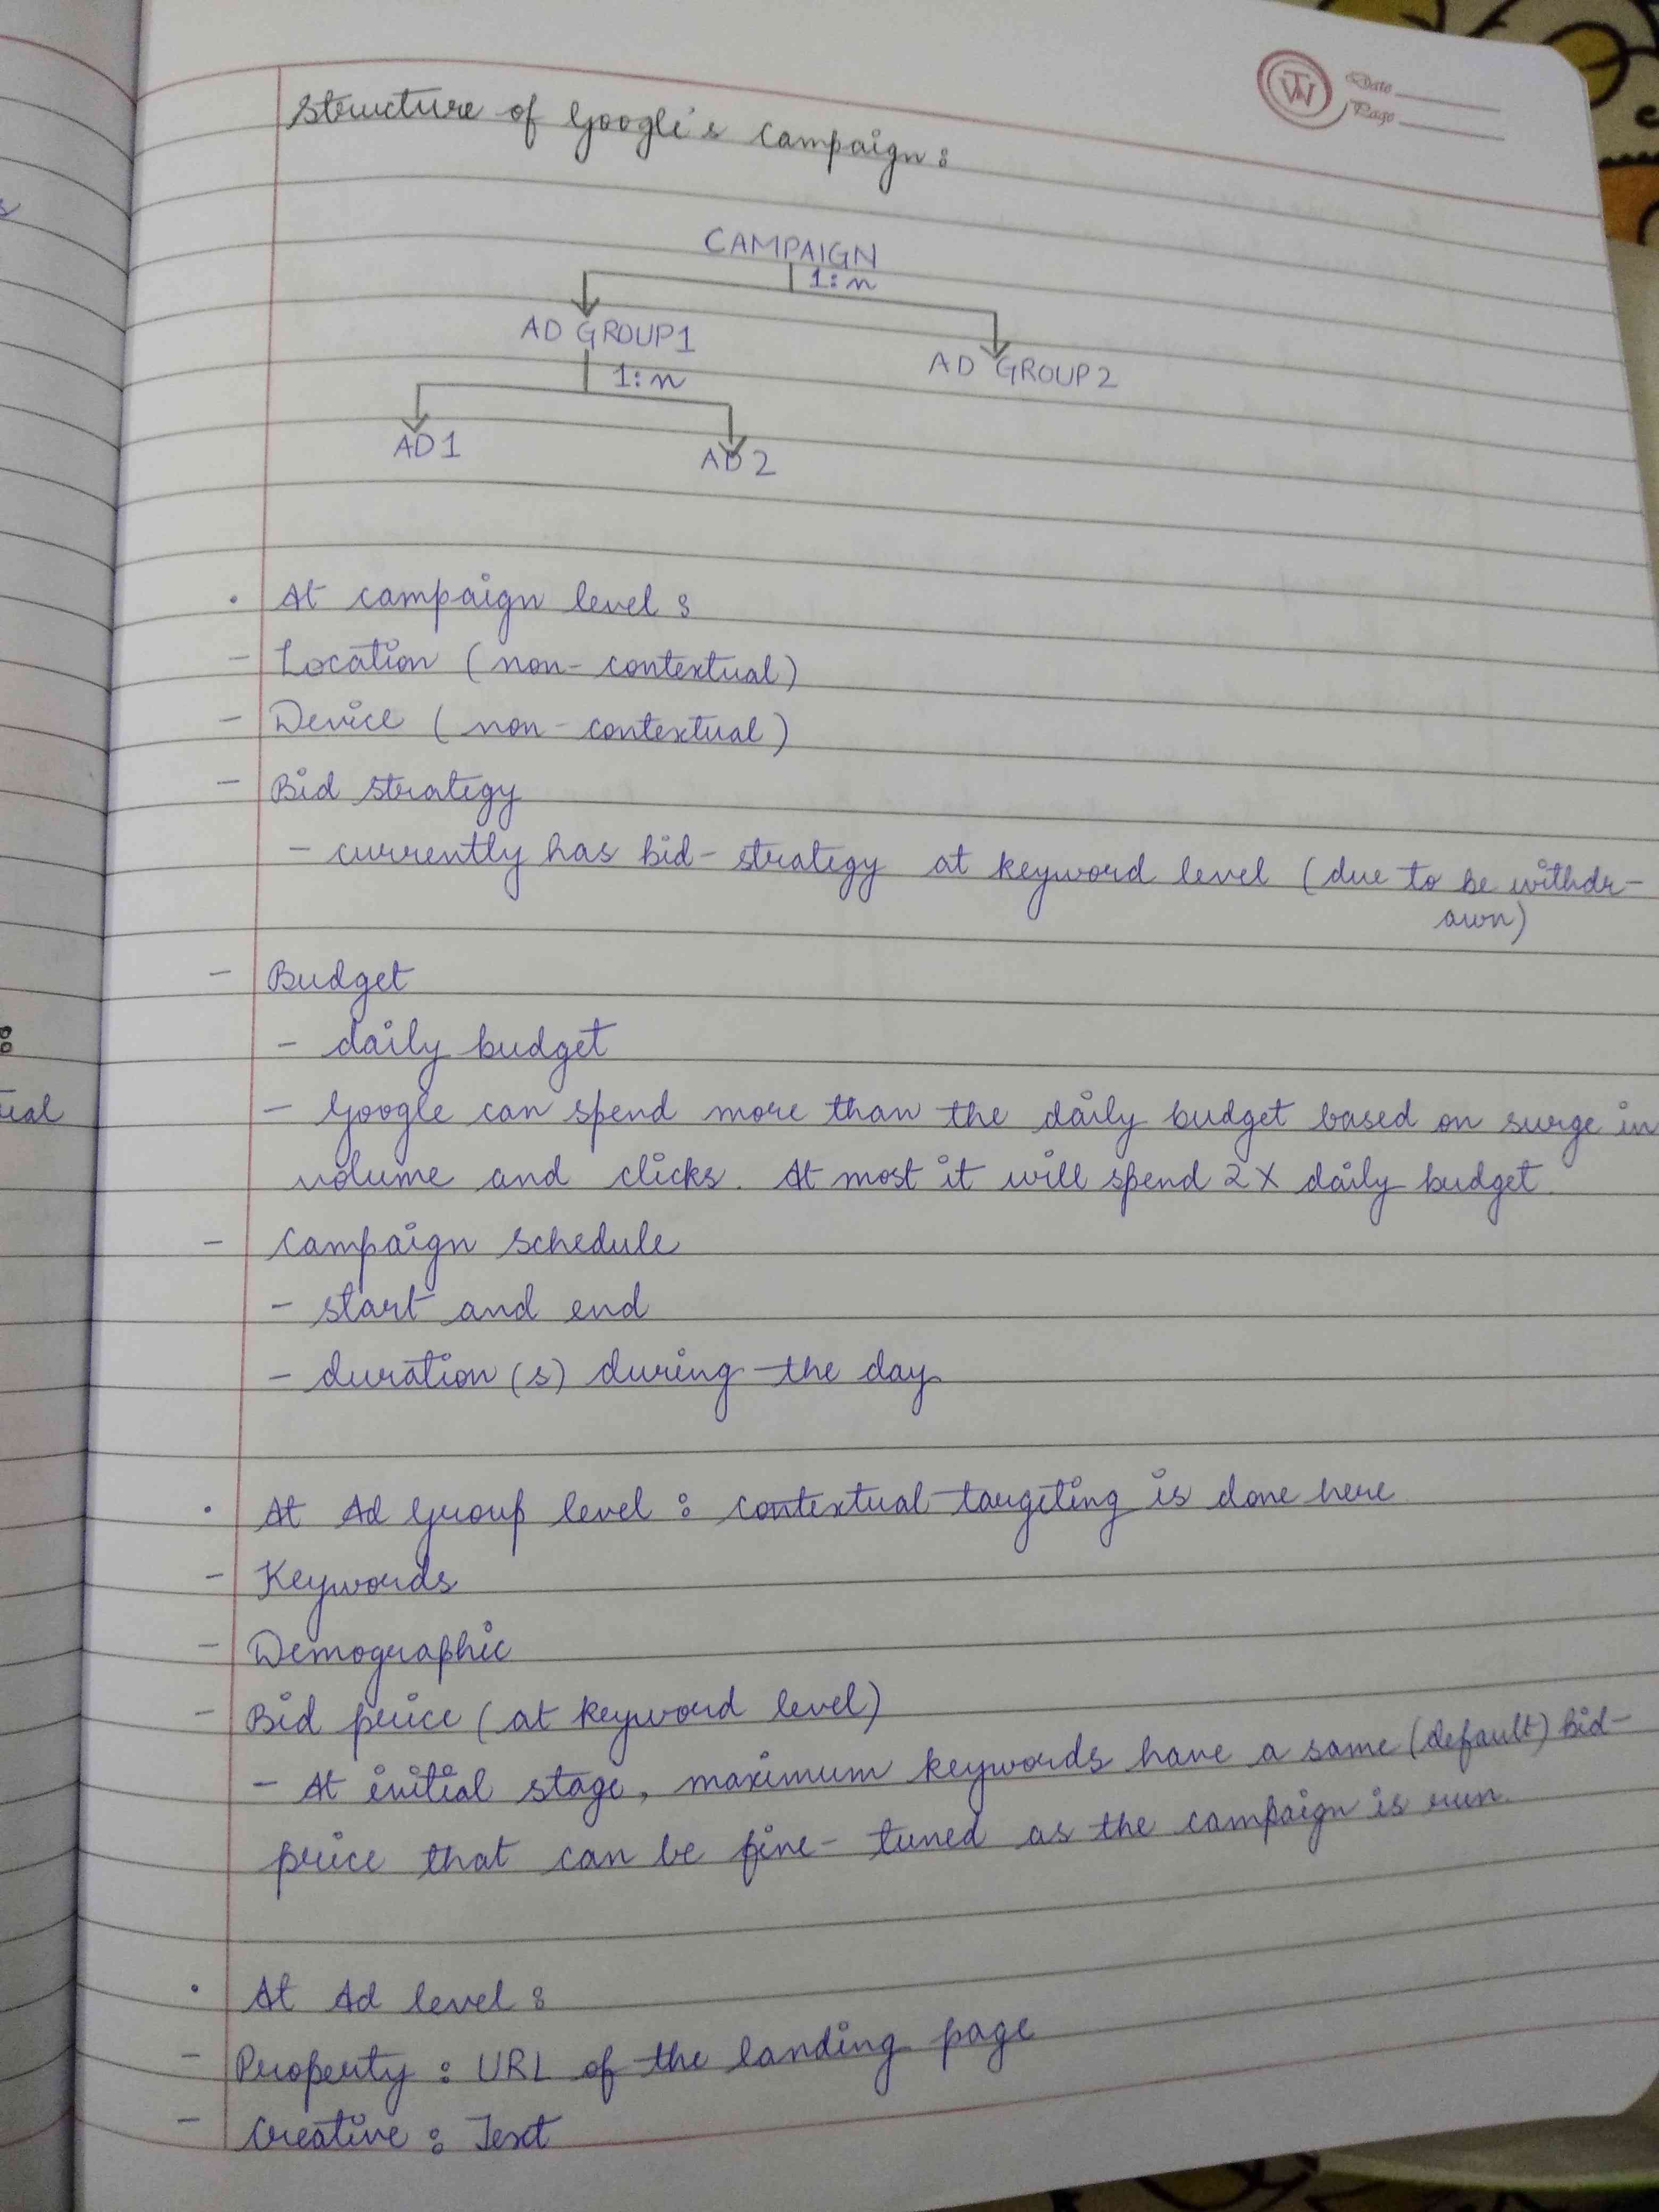 Date
Page
Structure of Google's Campaign :
CAMPAIGN
1:n
AD GROUP1
AD GROUP2
1:n
AD1
AD2
• At campaign level :
- Location (non-contextual)
- Device (non-contextual)
- Bid strategy
- currently has bid-strategy at keyword level (due to be withdr-
awn)
- Budget
- daily budget
- Google can spend more than the daily budget based on surge in
volume and clicks. At most it will spend 2X daily budget.
- Campaign schedule
- start and end
- duration(s) during the day
• At Ad Group level : contextual targeting is done here
- Keywords
- Demographic
- Bid price (at keyword level)
- At initial stage, maximum keywords have a same (default) bid-
price that can be fine-tuned as the campaign is run.
• At Ad level :
- Property : URL of the landing page
- Creative : Text